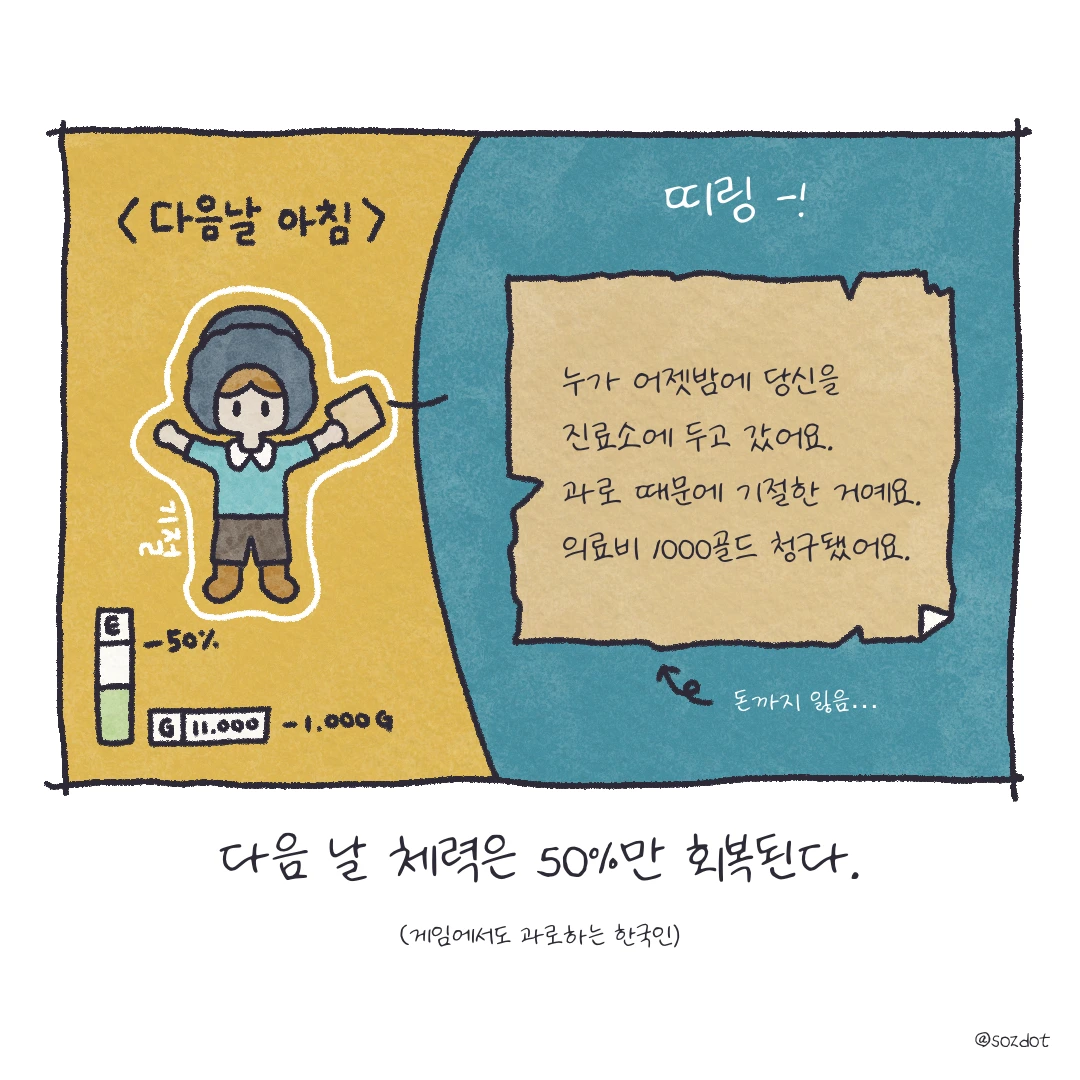 <다음날 아침>
기저귀
E
-50%
G 11.000 -1.000G
띠링 -!
누가 어젯밤에 당신을
진료소에 두고 갔어요.
과로 때문에 기절한 거예요.
의료비 1000골드 청구됐어요.
돈까지 잃음...
다음 날 체력은 50%만 회복된다.
(게임에서도 과로하는 한국인)
@sozdot